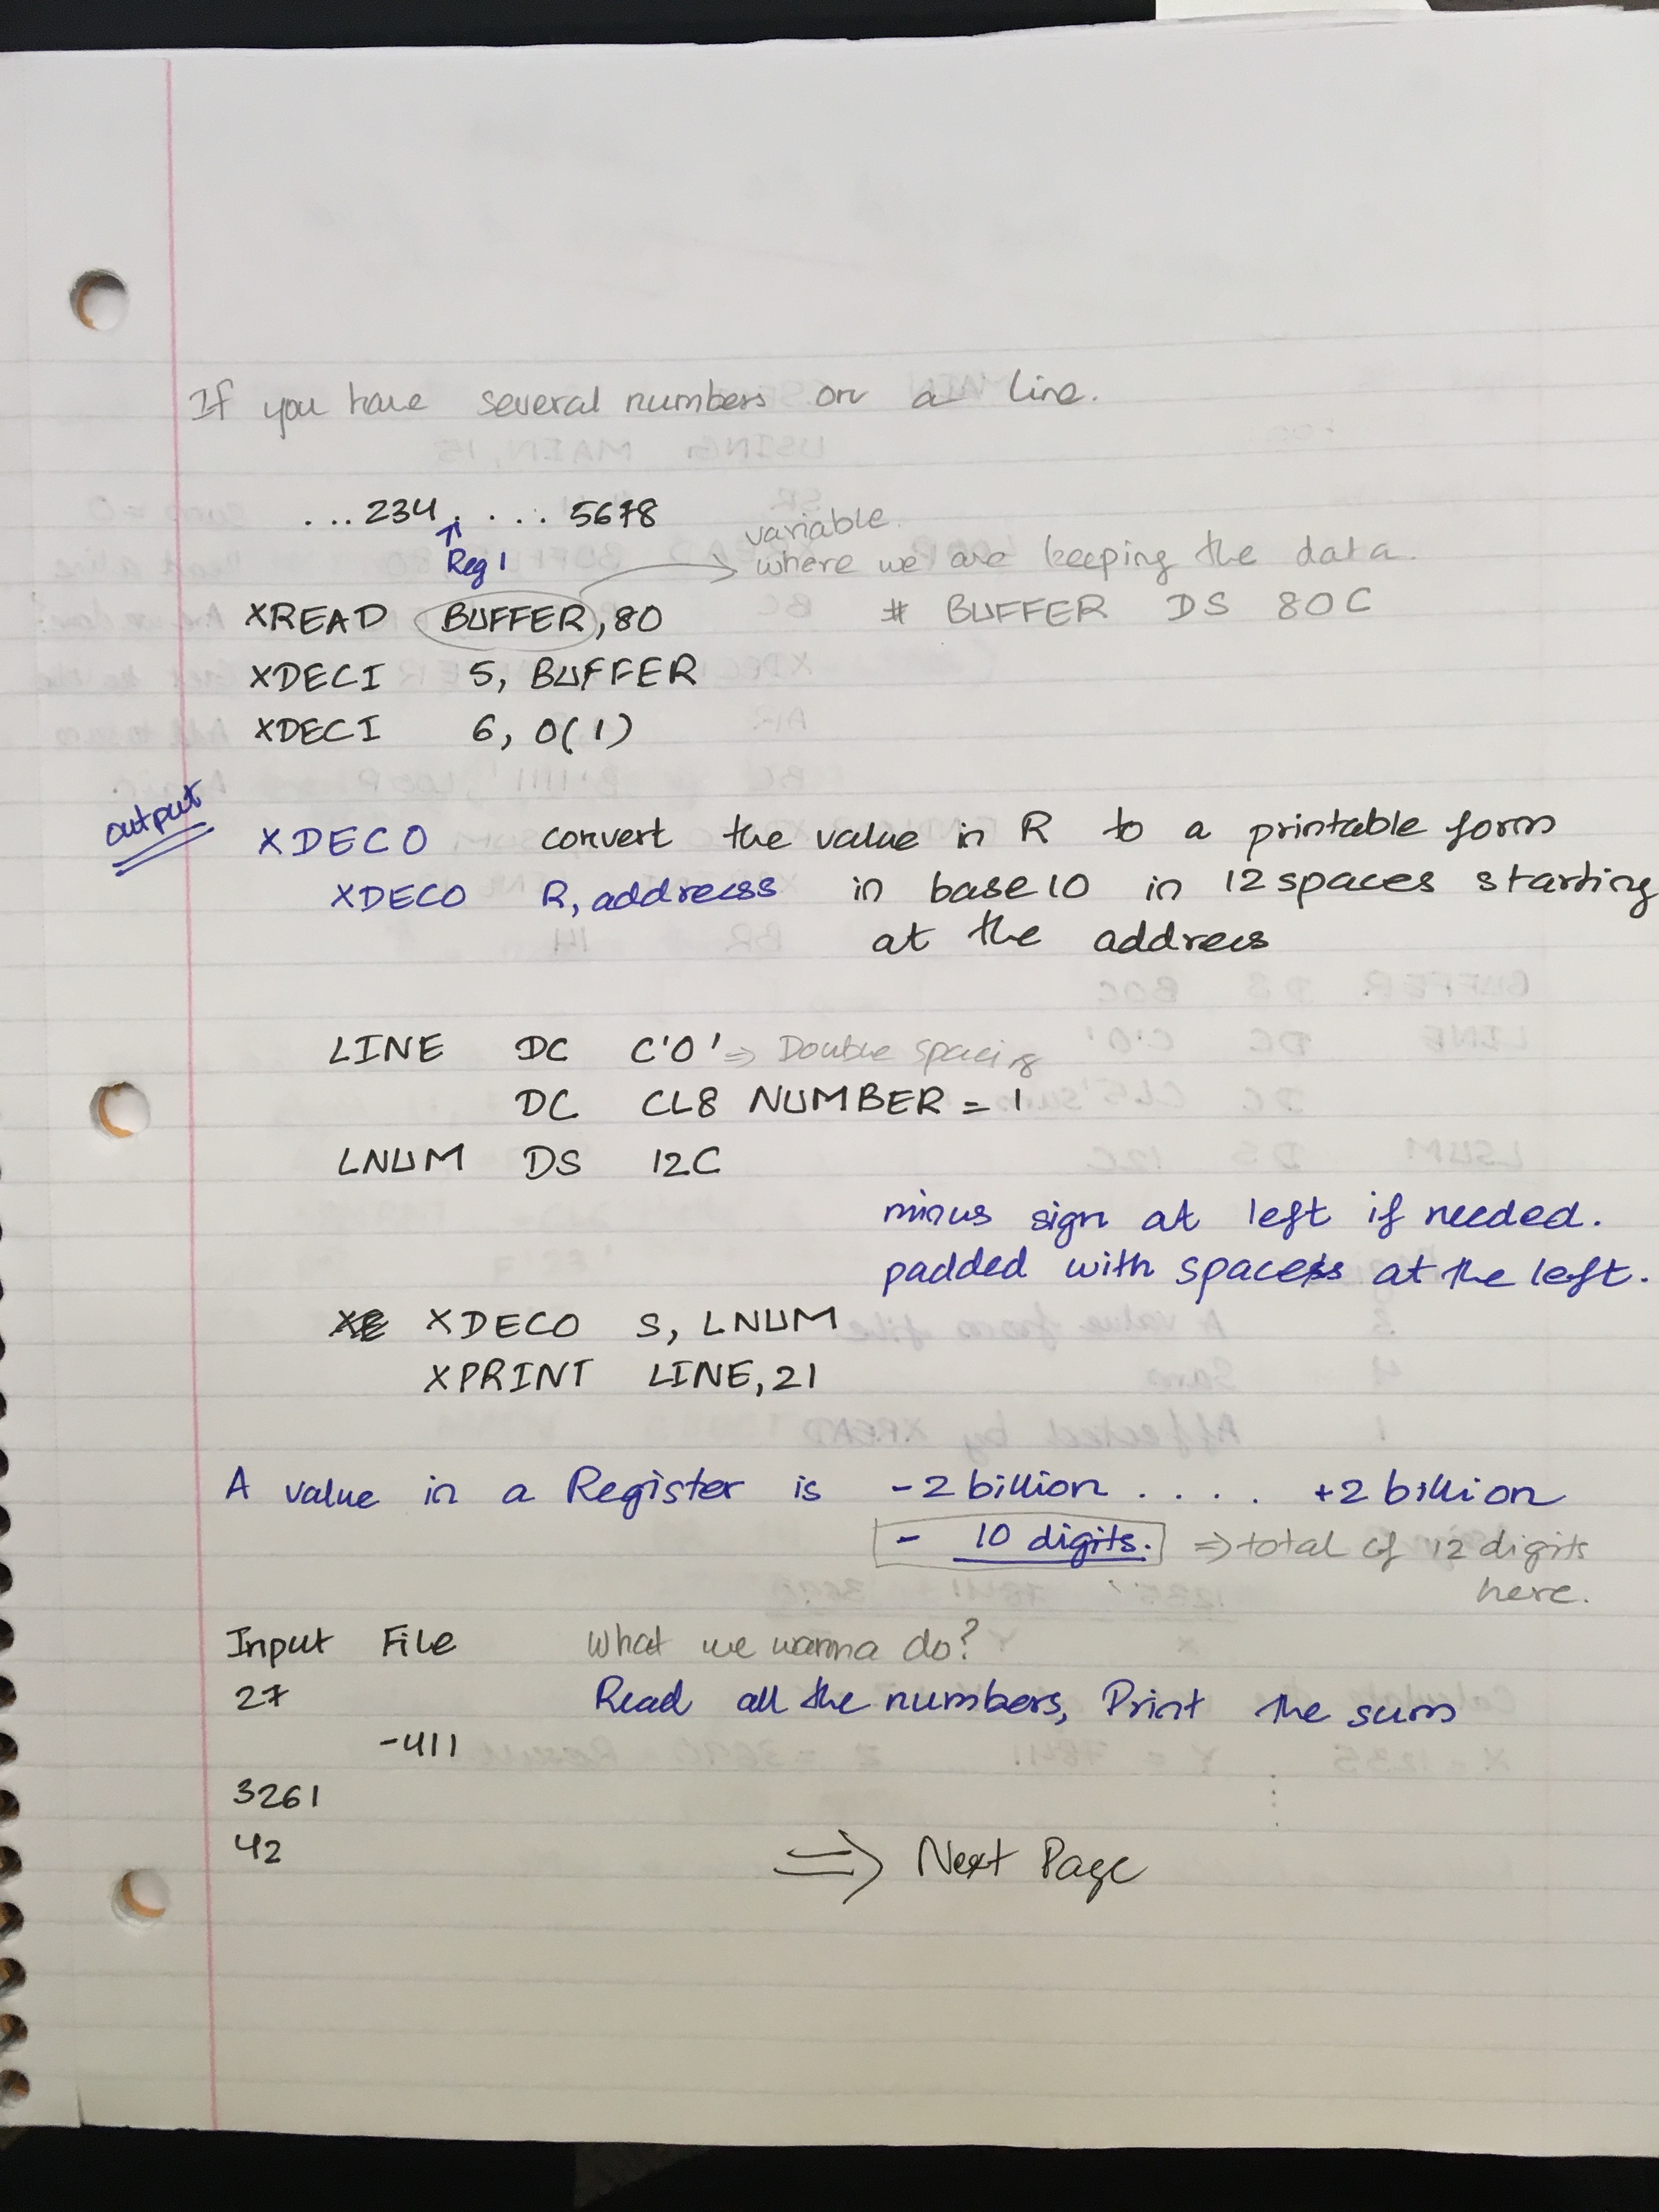 If you have several numbers on a line.
...234. ... 5678
Reg 1
variable.
where we are keeping the data.
XREAD BUFFER, 80 # BUFFER DS 80C
XDECI 5, BUFFER
XDECI 6, 0(1)
output
XDECO convert the value in R to a printable form
XDECO R, address in base 10 in 12 spaces starting
at the address
LINE DC C'0' => Double spacing
DC CL8 NUMBER = 1
LNUM DS 12C
minus sign at left if needed.
padded with spaces at the left.
XDECO S, LNUM
XPRINT LINE, 21
A value in a Register is -2 billion .... +2 billion
- 10 digits. => total of 12 digits
here.
Input File What we wanna do?
27 Read all the numbers, Print the sum
-411
3261
42
=> Next Page